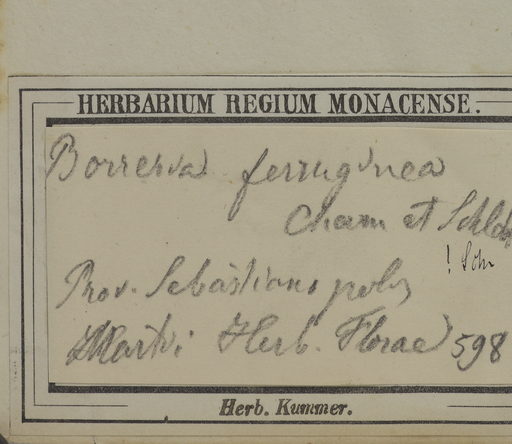 HERBARIUM REGIUM MONACENSE.
Borreria ferruginea
Cham et Schldl
! Sch
Prov. Sebastianopolis
Martii Herb. Florae 598
Herb. Kummer.